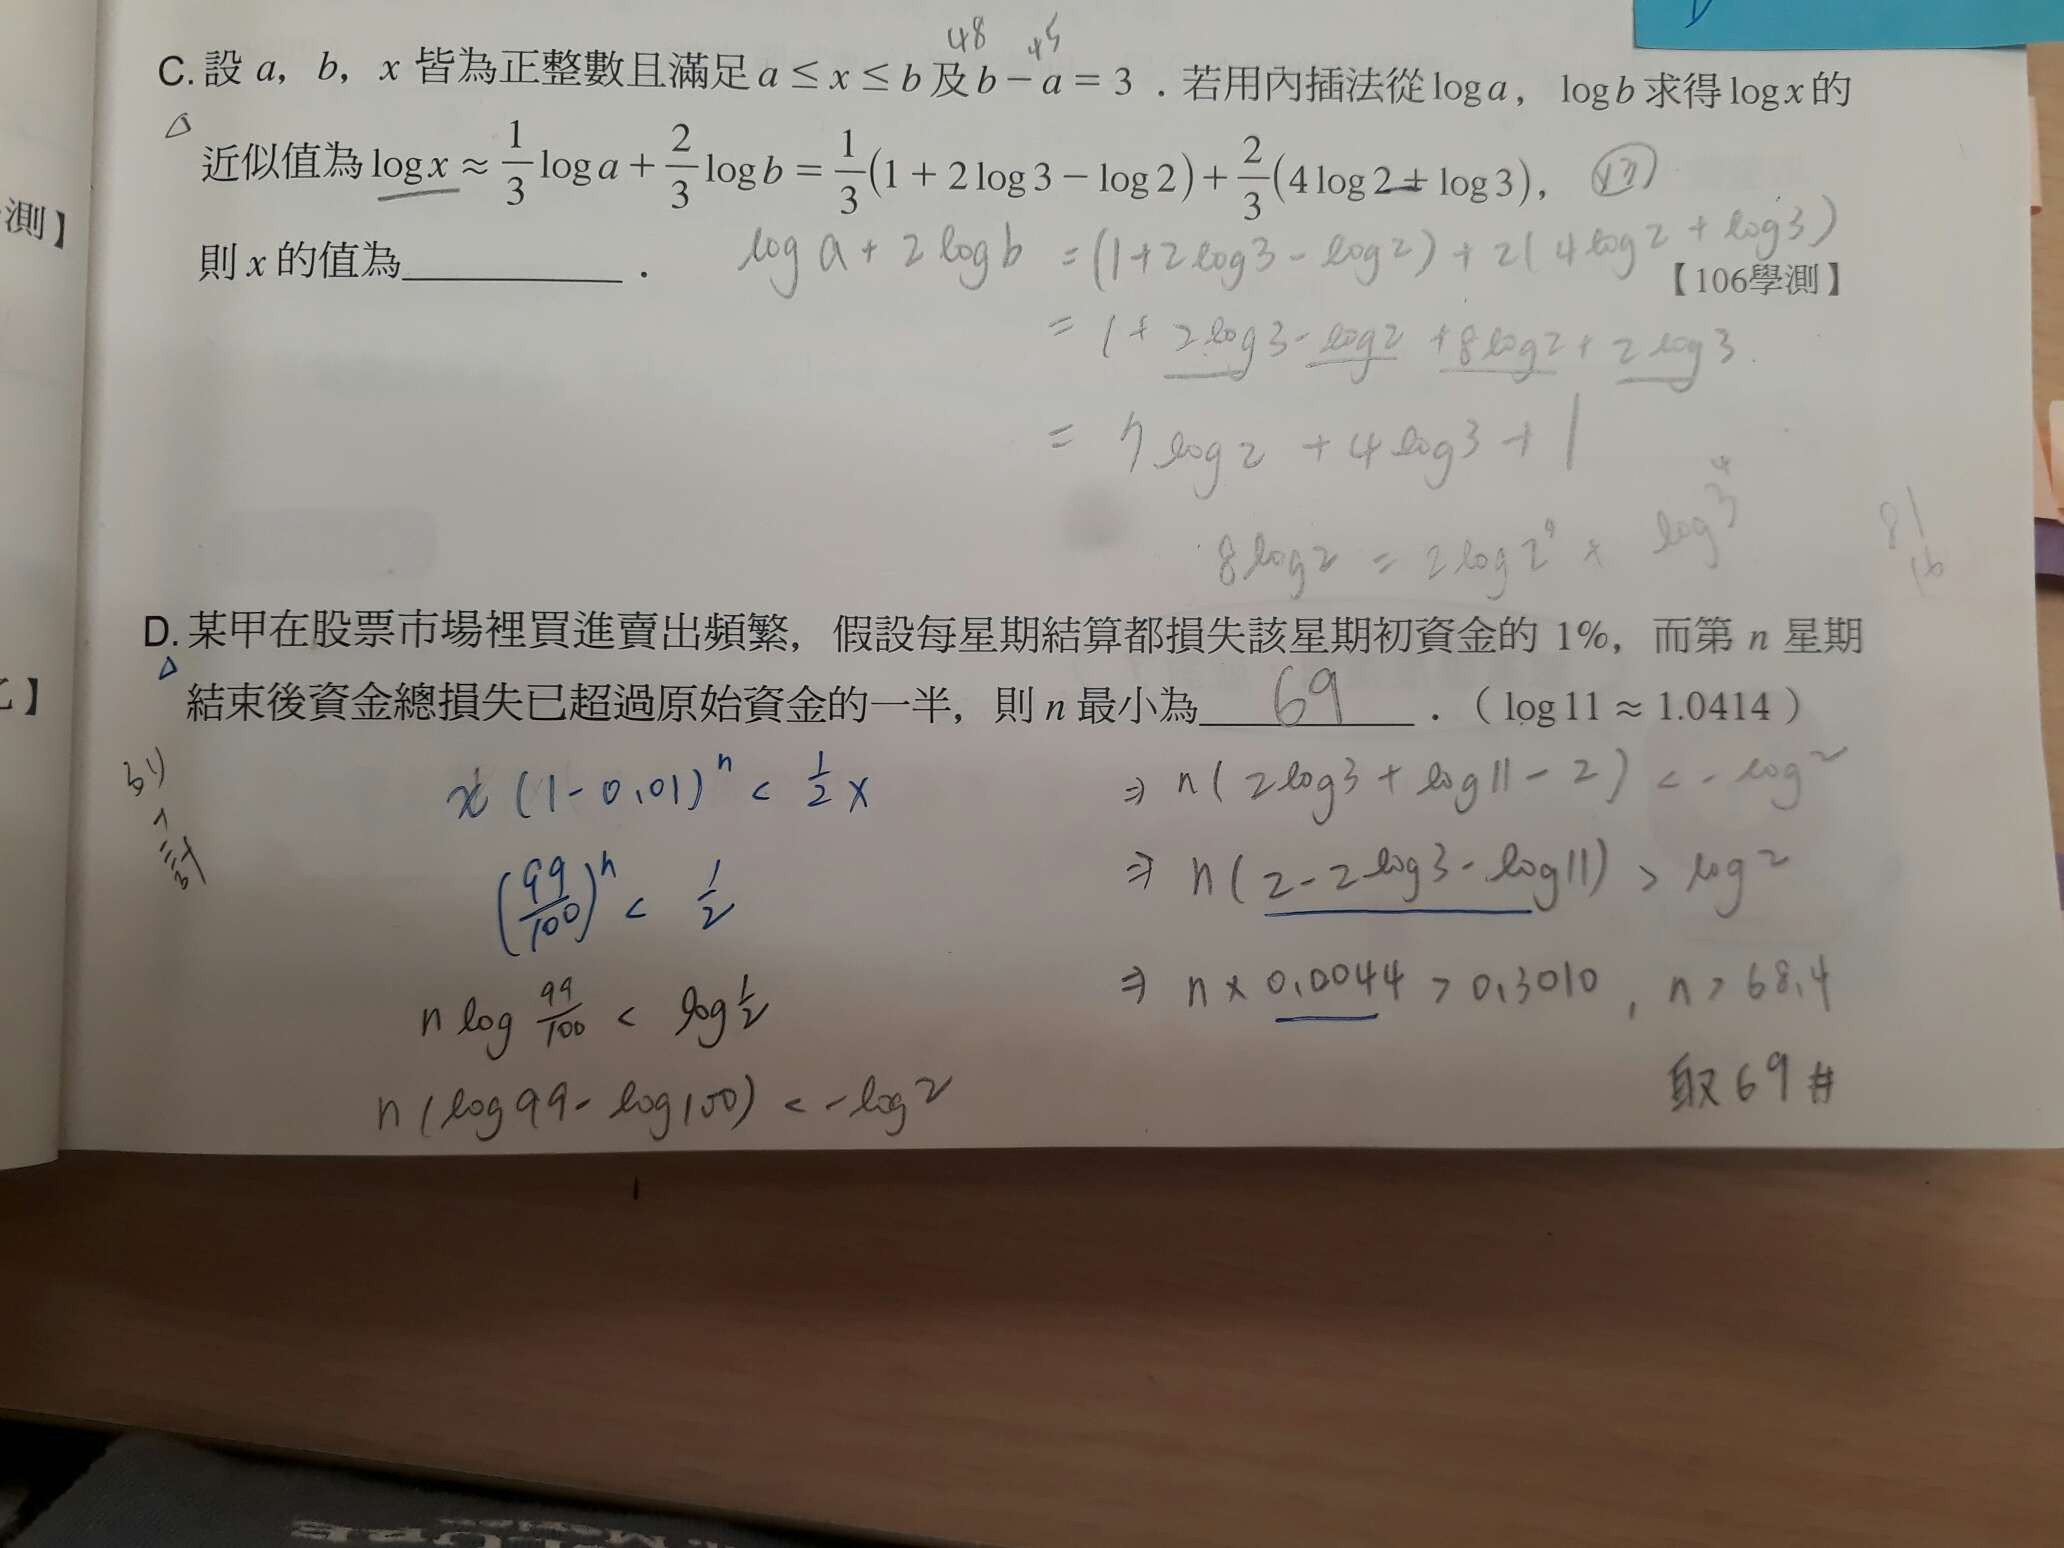 48 45
C. 設 a，b，x 皆為正整數且滿足 a ≤ x ≤ b 及 b − a = 3．若用內插法從 log a，log b 求得 log x 的
近似值為 log x ≈ 1/3 log a + 2/3 log b = 1/3 (1 + 2 log 3 − log 2) + 2/3 (4 log 2 + log 3)，
則 x 的值為________．
log a + 2 log b = (1 + 2 log 3 − log 2) + 2(4 log 2 + log 3)
【106學測】
= 1 + 2 log 3 − log 2 + 8 log 2 + 2 log 3
= 7 log 2 + 4 log 3 + 1
8 log 2 = 2 log 2⁴ + log 3⁴
81
16
測】
D. 某甲在股票市場裡買進賣出頻繁，假設每星期結算都損失該星期初資金的 1%，而第 n 星期
結束後資金總損失已超過原始資金的一半，則 n 最小為 69 ．（ log 11 ≈ 1.0414 ）
】
x (1 − 0.01)ⁿ < 1/2 x
(99/100)ⁿ < 1/2
n log 99/100 < log 1/2
n (log 99 − log 100) < − log 2
⇒ n ( 2 log 3 + log 11 − 2 ) < − log 2
⇒ n ( 2 − 2 log 3 − log 11 ) > log 2
⇒ n × 0.0044 > 0.3010 , n > 68.4
取 69 #